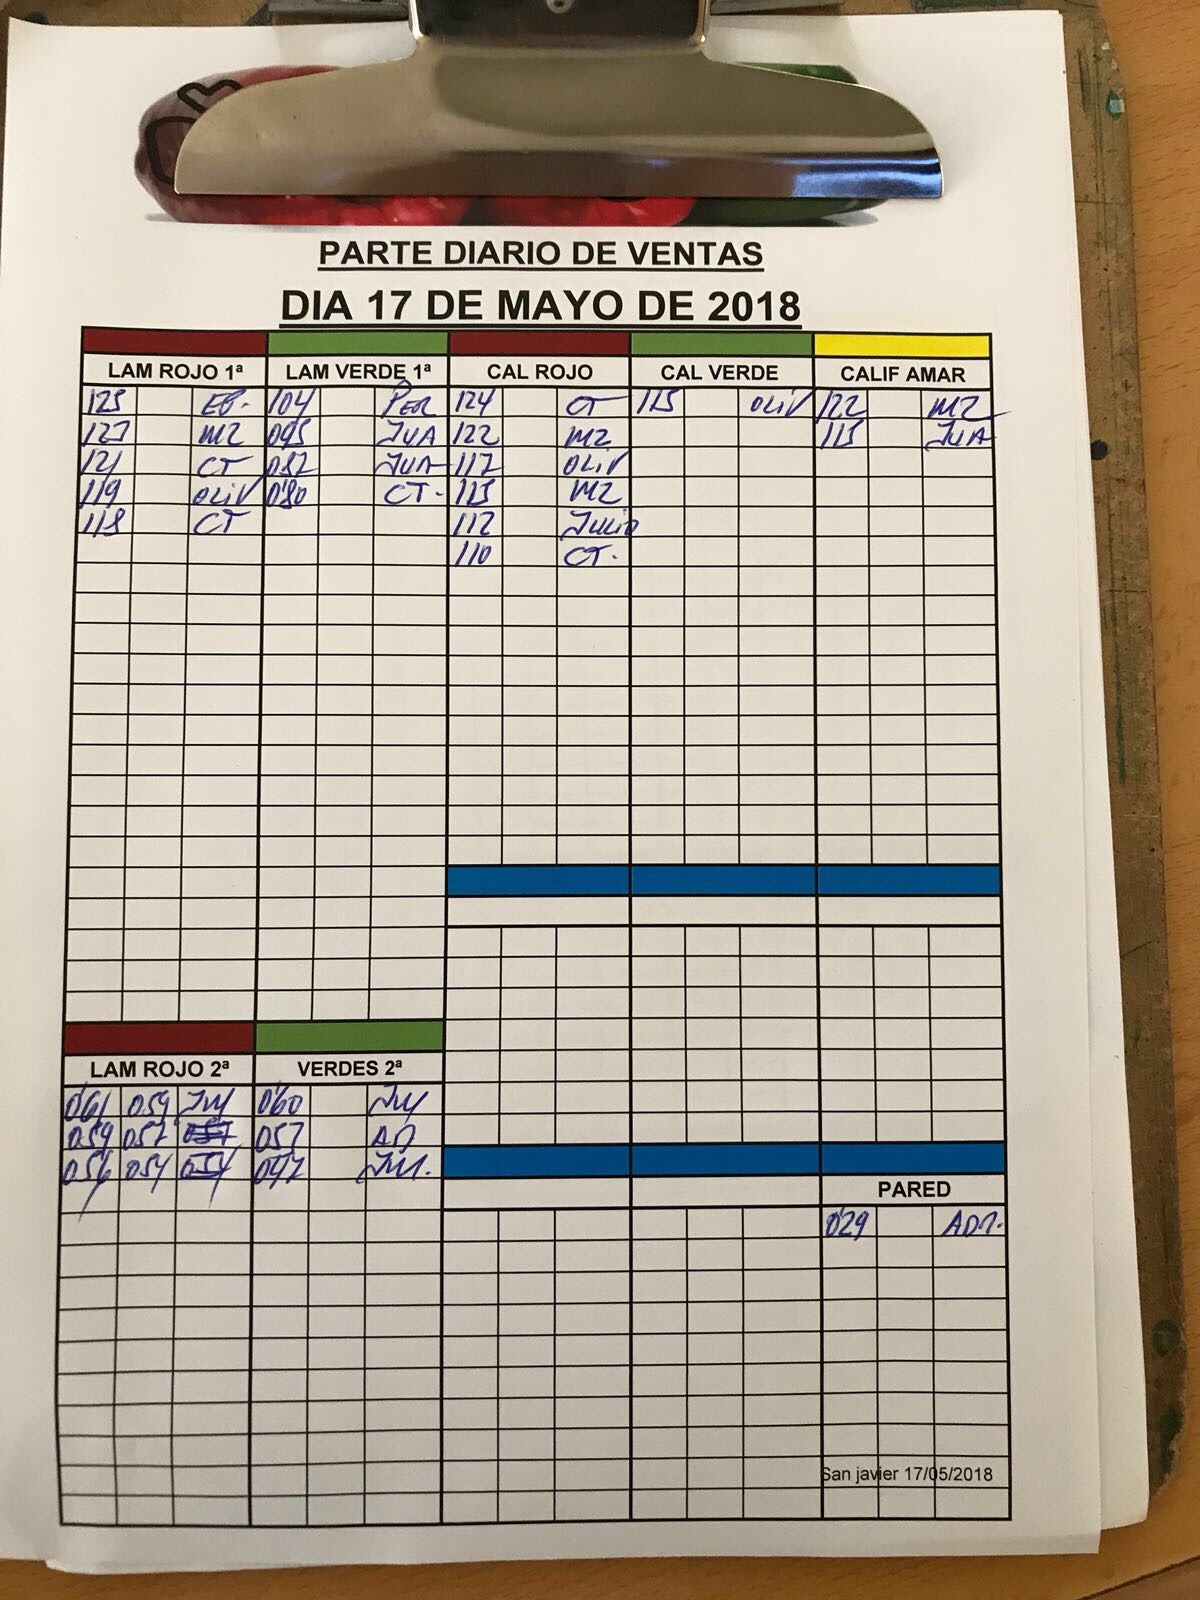 PARTE DIARIO DE VENTAS
DIA 17 DE MAYO DE 2018
LAM ROJO 1ª LAM VERDE 1ª CAL ROJO CAL VERDE CALIF AMAR
125 104 PER 124 CT 115 OLIV 122 MZ
MZ 095 JUA 122 MZ 115 JUA
121 CT JUA 117 OLIV
119 OLIV 080 CT. 115 MZ
118 CT 112 Julio
110 CT.
LAM ROJO 2ª VERDES 2ª
061 059 060
059 057 057 AD
056 054
PARED
029
San javier 17/05/2018